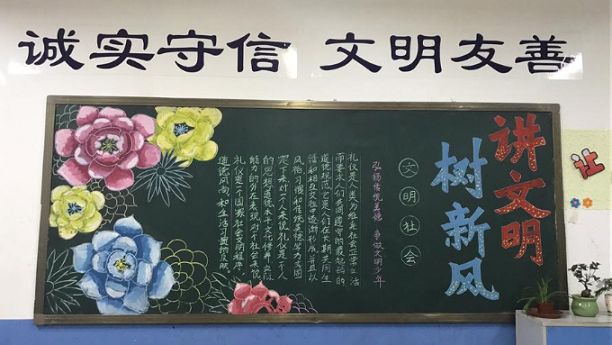 诚实守信 文明友善
讲文明
树新风
弘扬传统美德 争做文明少年
文明社会
礼仪是人类为维系社会正常生活
而要求人们共同遵守的最起码的
道德规范它是人们在长期共同生
活和相互交往中逐渐形成并且以
风俗习惯和传统等方式固
定下来对一个人来说礼仪是一个人
的思想道德水平文化修养交际
能力的外在表现对于社会来说
礼仪是一个国家社会文明程度
道德风尚和生活习惯的反映
让